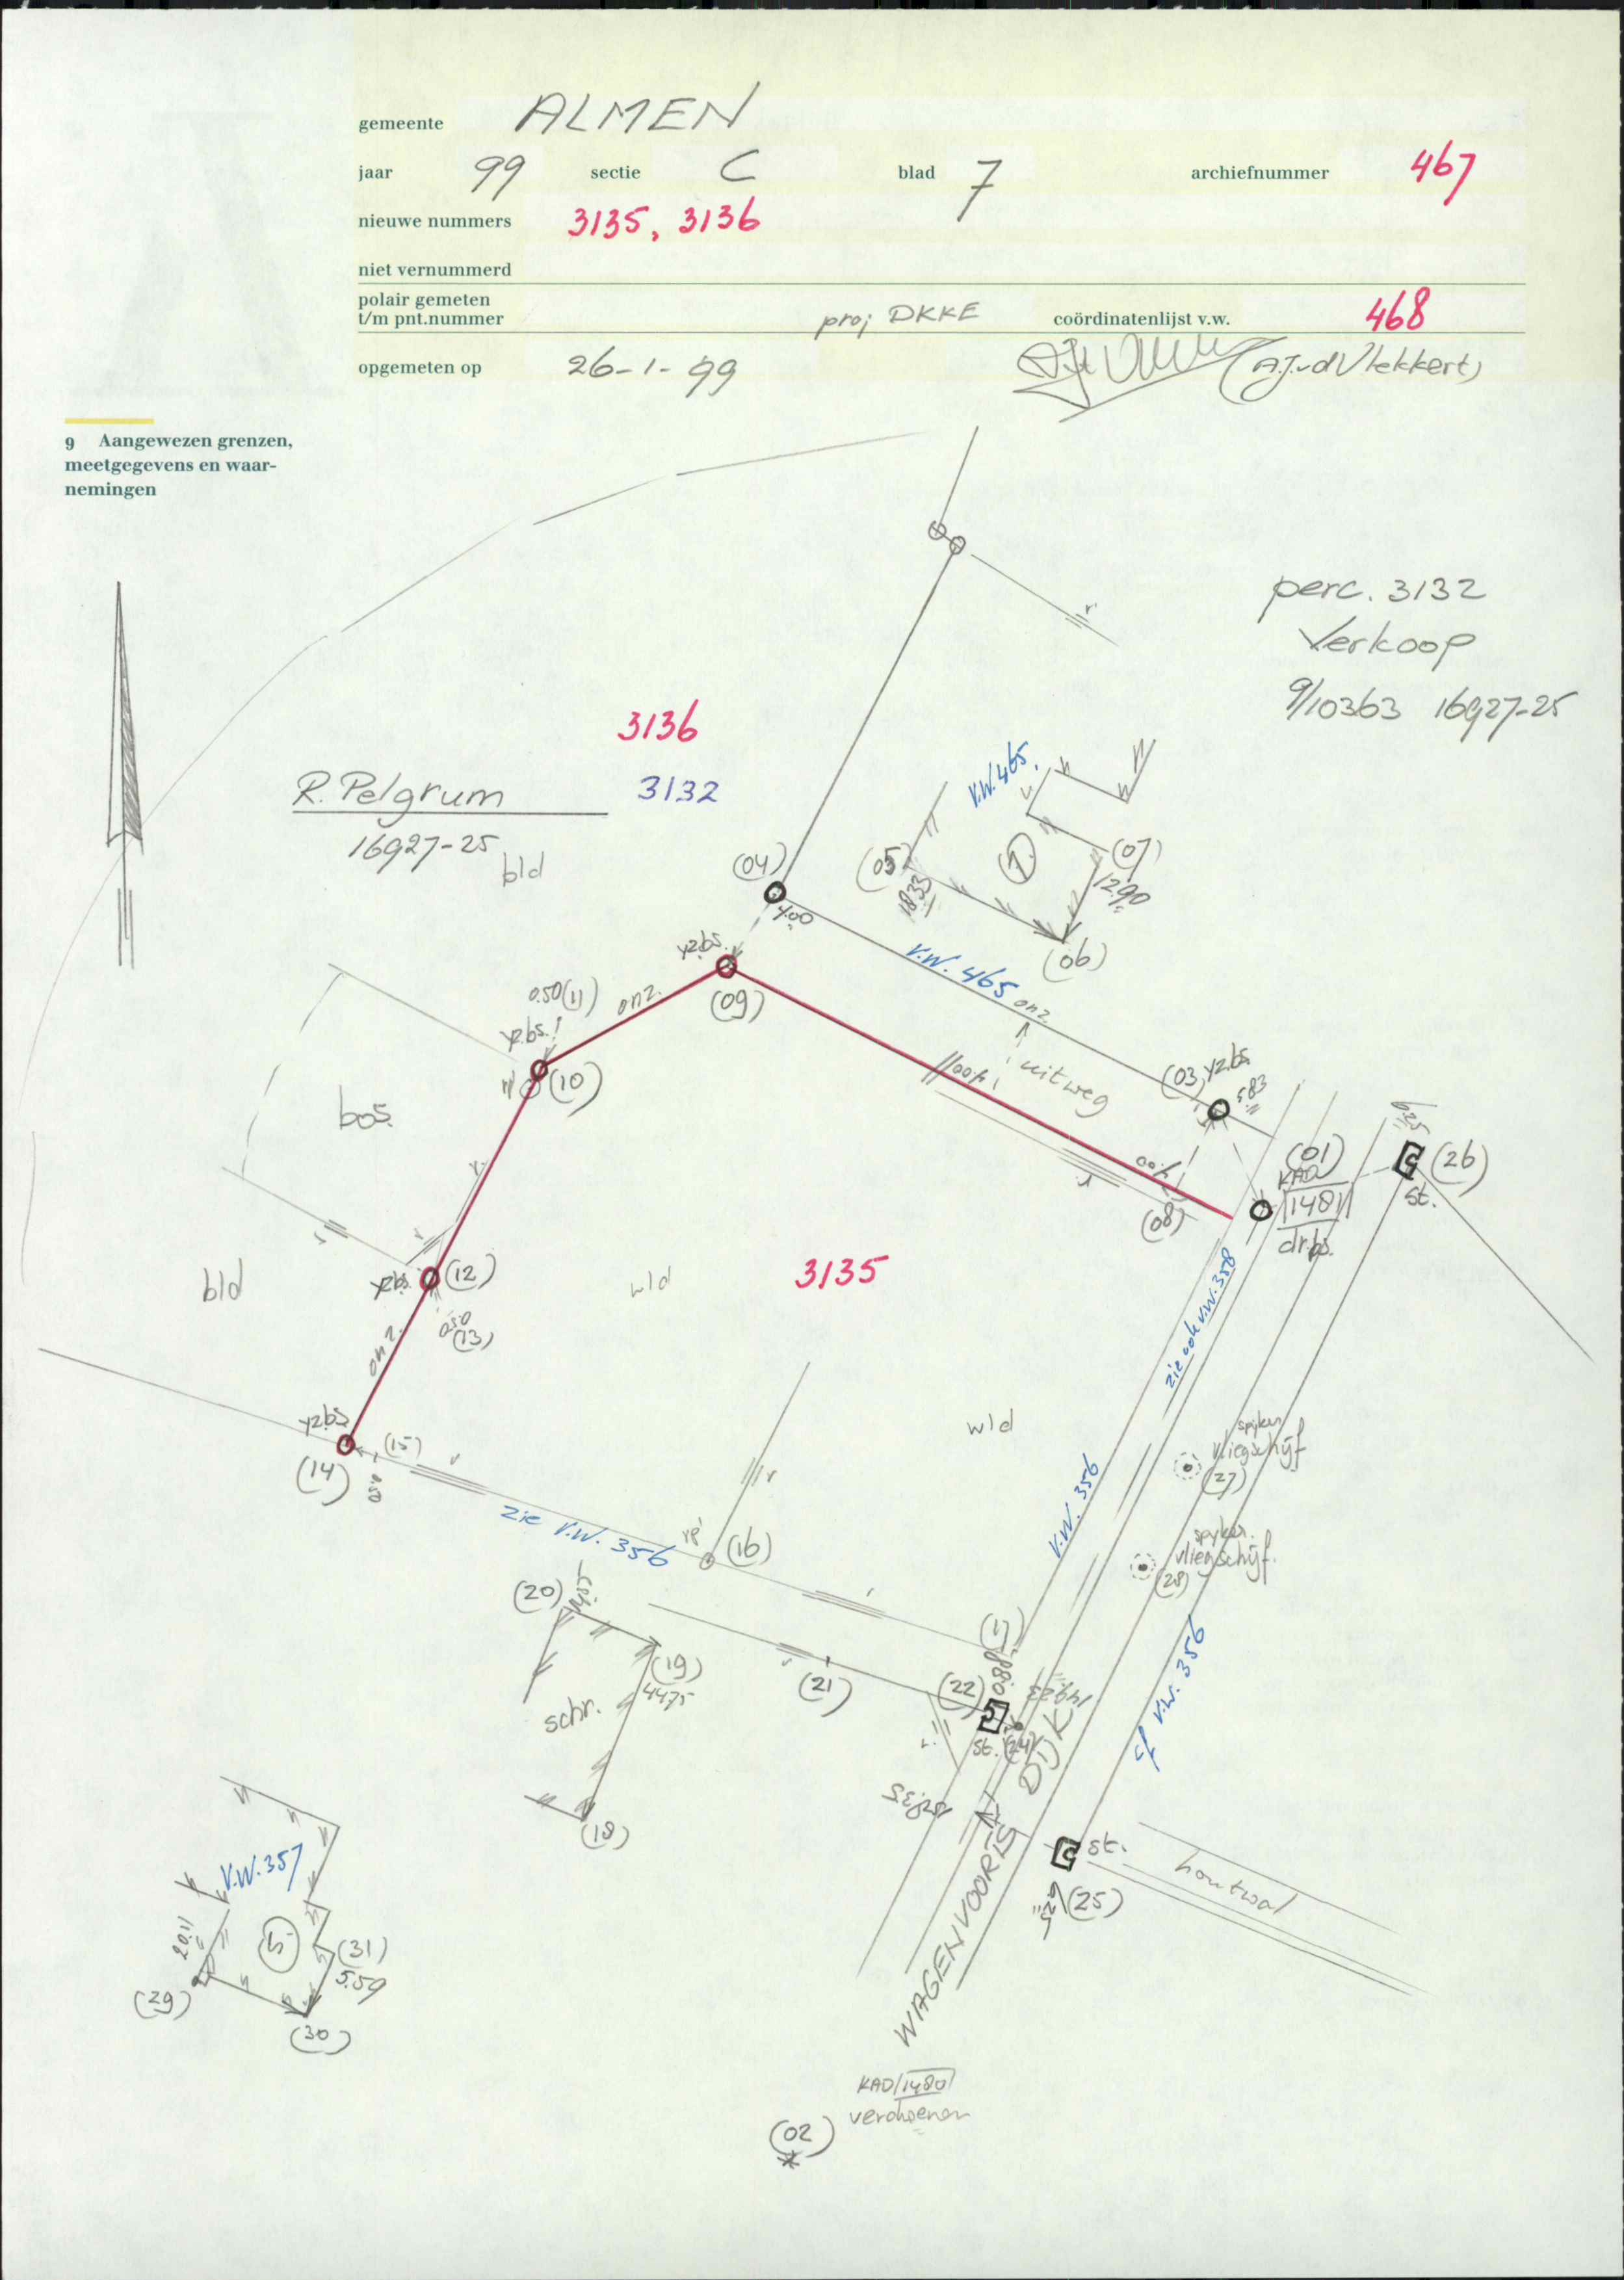 gemeente ALMEN
jaar 99 sectie C blad 7 archiefnummer 467
nieuwe nummers 3135, 3136
niet vernummerd
polair gemeten
t/m pnt.nummer proj DKKE coördinatenlijst v.w. 468
opgemeten op 26-1-99 (A.J.vdVlekkert)
9 Aangewezen grenzen,
meetgegevens en waar-
nemingen
perc. 3132
Verkoop
9/10363 16927-25
3136
3132
R. Pelgrum
16927-25
bld
V.W. 465.
(04)
4.00
(05)
1833
(1)
(07)
1290
(06)
V.W. 465
onz.
yzbs.
(09)
0.50 (11)
onz.
yzbs.
(10)
rp
4.00
uitweg
(03)
yzbs.
5.83
bos.
r
4.00
(08)
(01)
KAD
1481
dr.bs.
6.25
(26)
st.
bld
yzbs.
(12)
wld
3135
0.50
(13)
onz.
zie ook V.W. 358
yzbs
(14)
(15)
0.50
wld
spyker
vliegschijf
(27)
V.W. 356
zie V.W. 356
rp
(16)
spyker.
vliegschijf.
(28)
(20)
(19)
4475
schr.
(18)
(21)
(22)
0.88
st.
(24)
149.23
cf V.W. 356
WAGENVOORTS DIJK
st.
(25)
houtwal
V.W. 357
20.11
(5)
(31)
5.59
(29)
(30)
KAD 1480
(02)